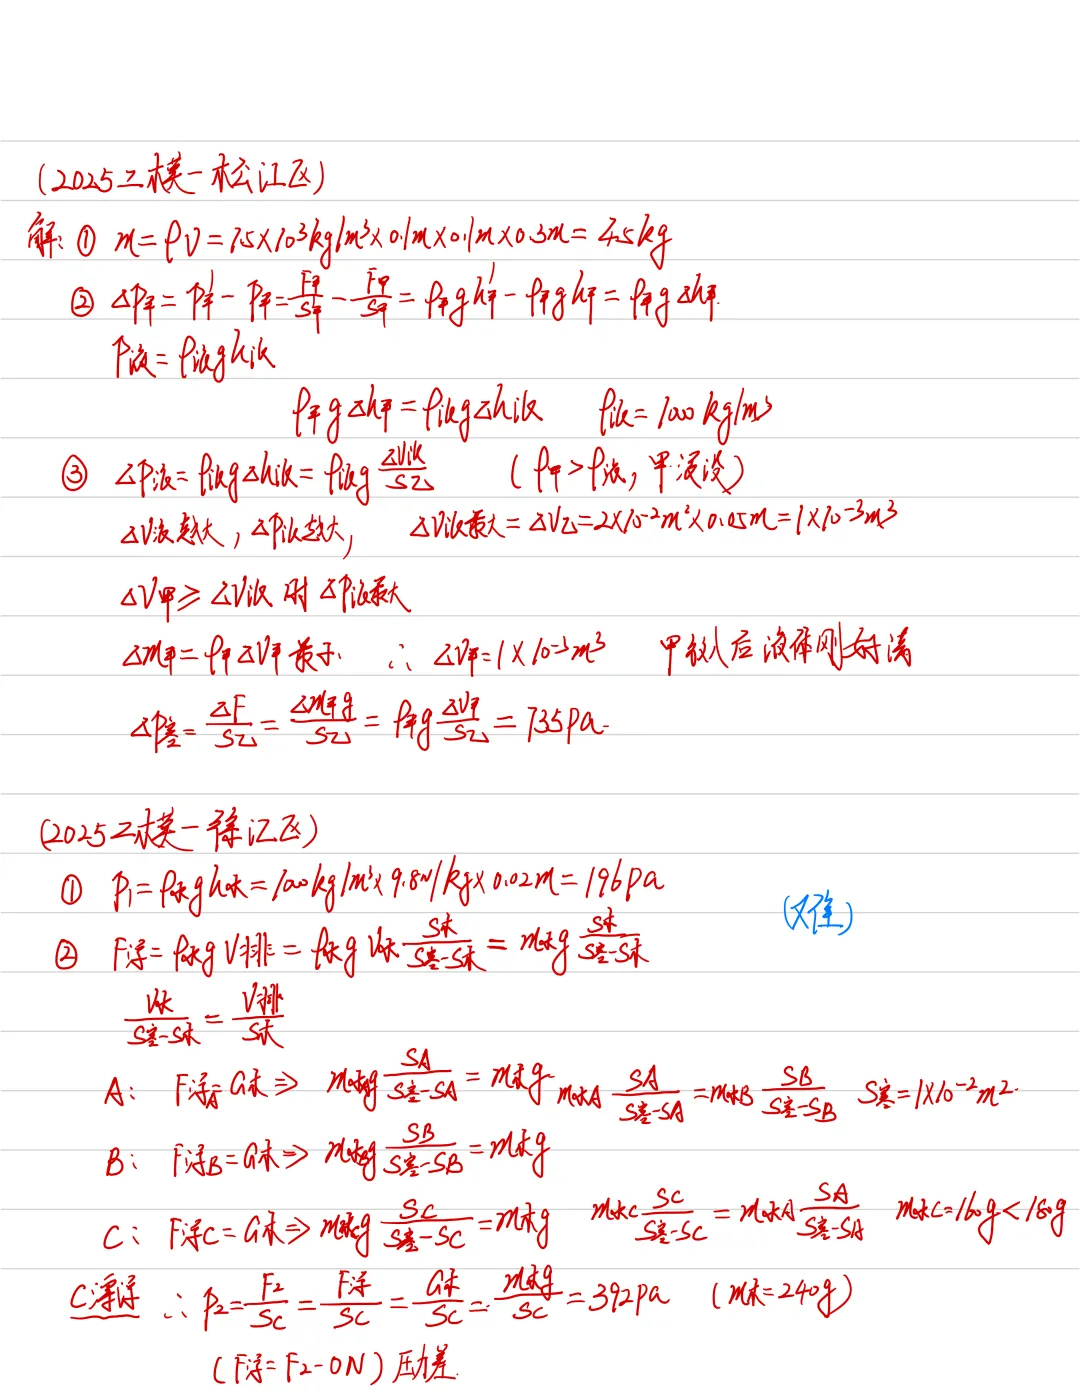 (2025二模-松江区)
解: ① m=ρV=1.5×10³kg/m³×0.1m×0.1m×0.3m=4.5kg
② Δp甲=p甲'-p甲=F甲'/S甲-F甲/S甲=ρ甲gh甲'-ρ甲gh甲=ρ甲gΔh甲.
p液=ρ液gh液
ρ甲gΔh甲=ρ液gΔh液 ρ液=1000kg/m³
③ Δp液=ρ液gΔh液=ρ液g ΔV液/S乙 (ρ甲>ρ液, 甲浸没)
ΔV液越大, Δp液越大, ΔV液最大=ΔV乙=2×10⁻²m²×0.05m=1×10⁻³m³
ΔV甲≥ΔV液时Δp液最大
Δm甲=ρ甲ΔV甲最小 ∴ ΔV甲=1×10⁻³m³ 甲放入后液体刚好满
Δp容=ΔF/S乙=Δm甲g/S乙=ρ甲g ΔV甲/S乙=735pa.
(2025二模-徐汇区)
① p₁=ρ水gh水=1000kg/m³×9.8N/kg×0.02m=196pa
(难)
② F浮=ρ水gV排=ρ水gV水 S木/(S容-S木)=m水g S木/(S容-S木)
V水/(S容-S木)=V排/S木
A: F浮A=G木⇒ m水Ag SA/(S容-SA)=m木g m水A SA/(S容-SA)=m水B SB/(S容-SB) S容=1×10⁻²m².
B: F浮B=G木⇒ m水Bg SB/(S容-SB)=m木g
C: F浮C=G木⇒ m水Cg SC/(S容-SC)=m木g m水C SC/(S容-SC)=m水A SA/(S容-SA) m水C=160g<180g
C漂浮 ∴ p₂=F₂/SC=F浮/SC=G木/SC=m木g/SC=392pa (m木=240g)
(F浮=F₂-0N) 压力差